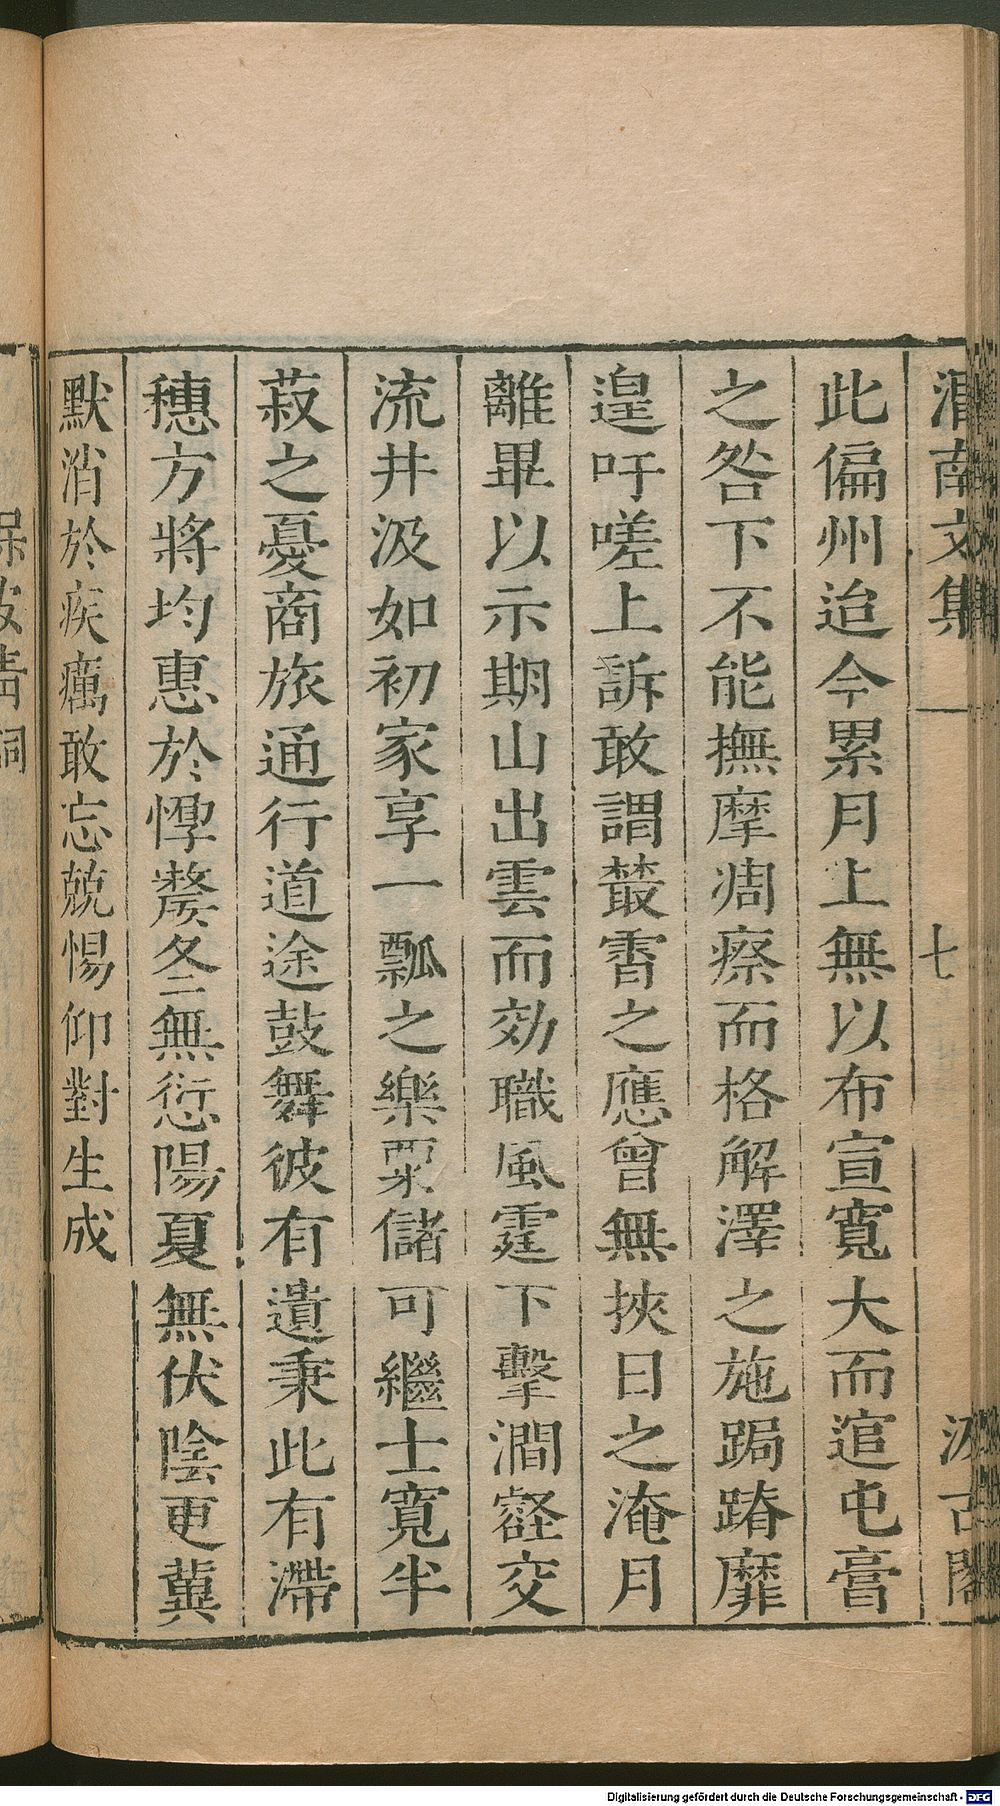 渭南文集 七 汲古閣
此偏州迨今累月上無以布宣寬大而逭屯膏
之咎下不能撫摩凋瘵而格解澤之施跼蹐靡
遑吁嗟上訴敢謂叢霄之應曾無挾日之淹月
離畢以示期山出雲而効職風霆下擊澗壑交
流井汲如初家享一瓢之樂粟儲可繼士寬半
菽之憂商旅通行道途鼓舞彼有遺秉此有滯
穗方將均惠於惸嫠冬無愆陽夏無伏陰更冀
默消於疾癘敢忘兢惕仰對生成
青詞
Digitalisierung gefördert durch die Deutsche Forschungsgemeinschaft - DFG